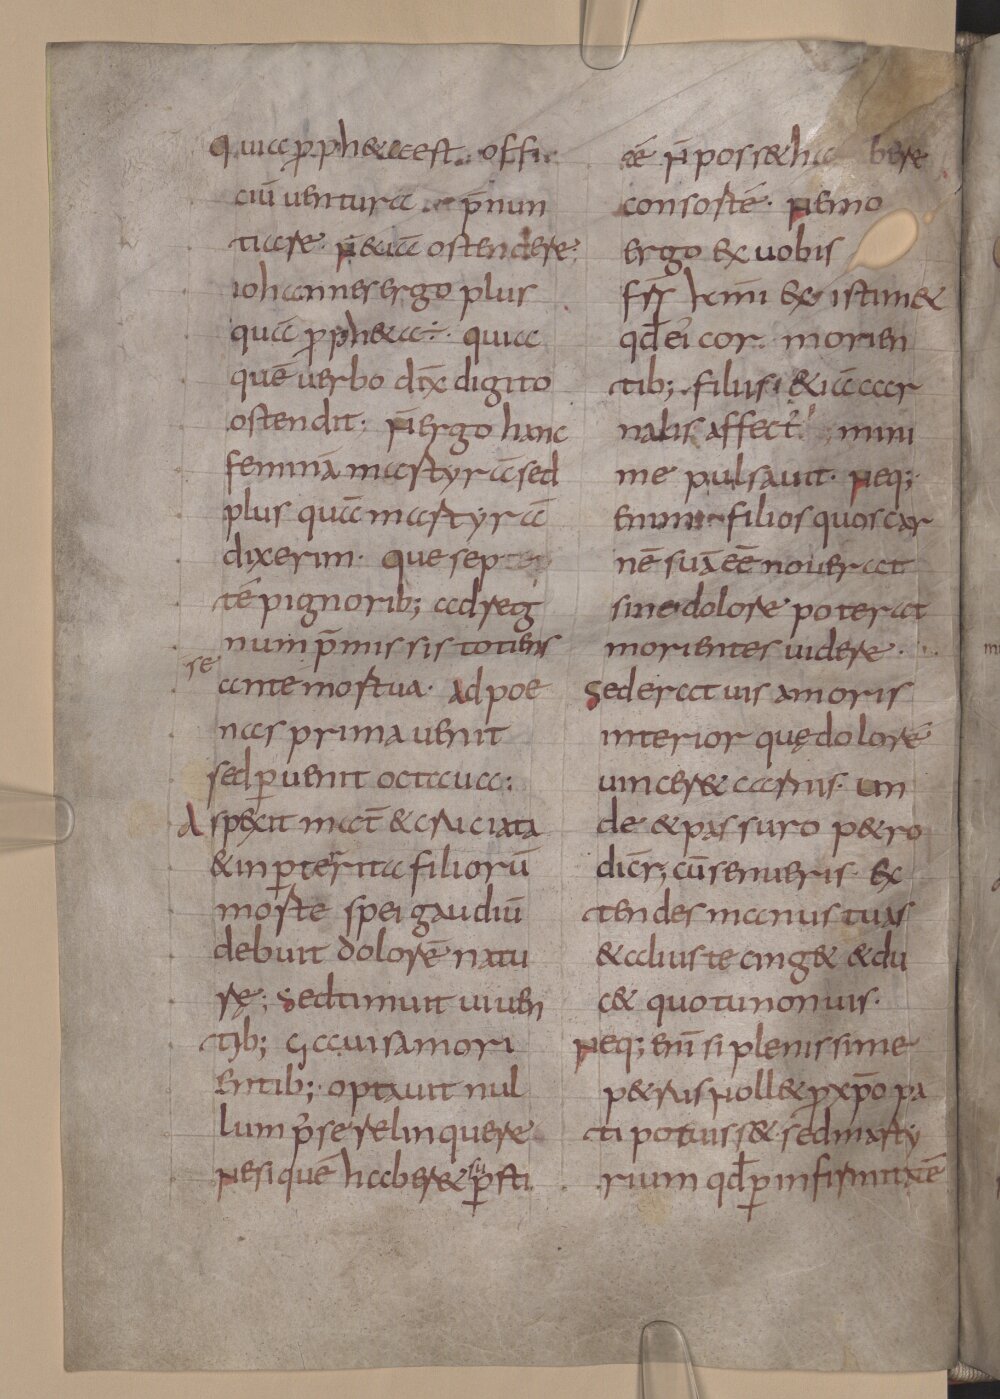 quia ꝓph&a est. offi
ciū uentura p̄nun
tiare. n̄ &iā ostendere;
iohannes ergo plus
quā ꝓph&a ÷. quia
quē uerbo dix̄ digito
ostendit; n̄ ergo hanc
feminā martyrā sed
plus quā martyrā
dixerim. Que sep
tē pignorib; ad reg
num p̄missis totiens
se
ante mortua. ad poe
nas prima uenit
sed ꝑuenit octaua;
Aspexit mat̄ & cruciata
& inꝑterrita filiorū
morte spei gaudiū
debuit dolorē natu
rę; Sed timuit uiuen
tib; gauisa mori
entib; optauit nul
lum p̄ se relinquere
Ne si quē haber& su ꝑsti
tē n̄ poss& ha bere
consortē. Nemo
ergo ex uobis
frs̄ km̄i ex istim&
qđ ei cor. morien
tib; filiis; &iā car
nalis affect᾽ mini
me pulsauit. Neq;
enim filios quos car
nē suā eē nouerat
sine dolore poterat
morientes uidere.
Sed erat uis amoris
interior quę dolorē
uincer& carnis. Un
de & passuro p&ro
dicr̄; cū senueris. Ex
tendes manus tuas
& alius te cing& & du
c& quo tu non uis.
Neq; enī si plenissime
p&rus noll& ꝓ xp̄o pa
ti potuiss&. sed marty
rium qđ ꝑ infirmitatē